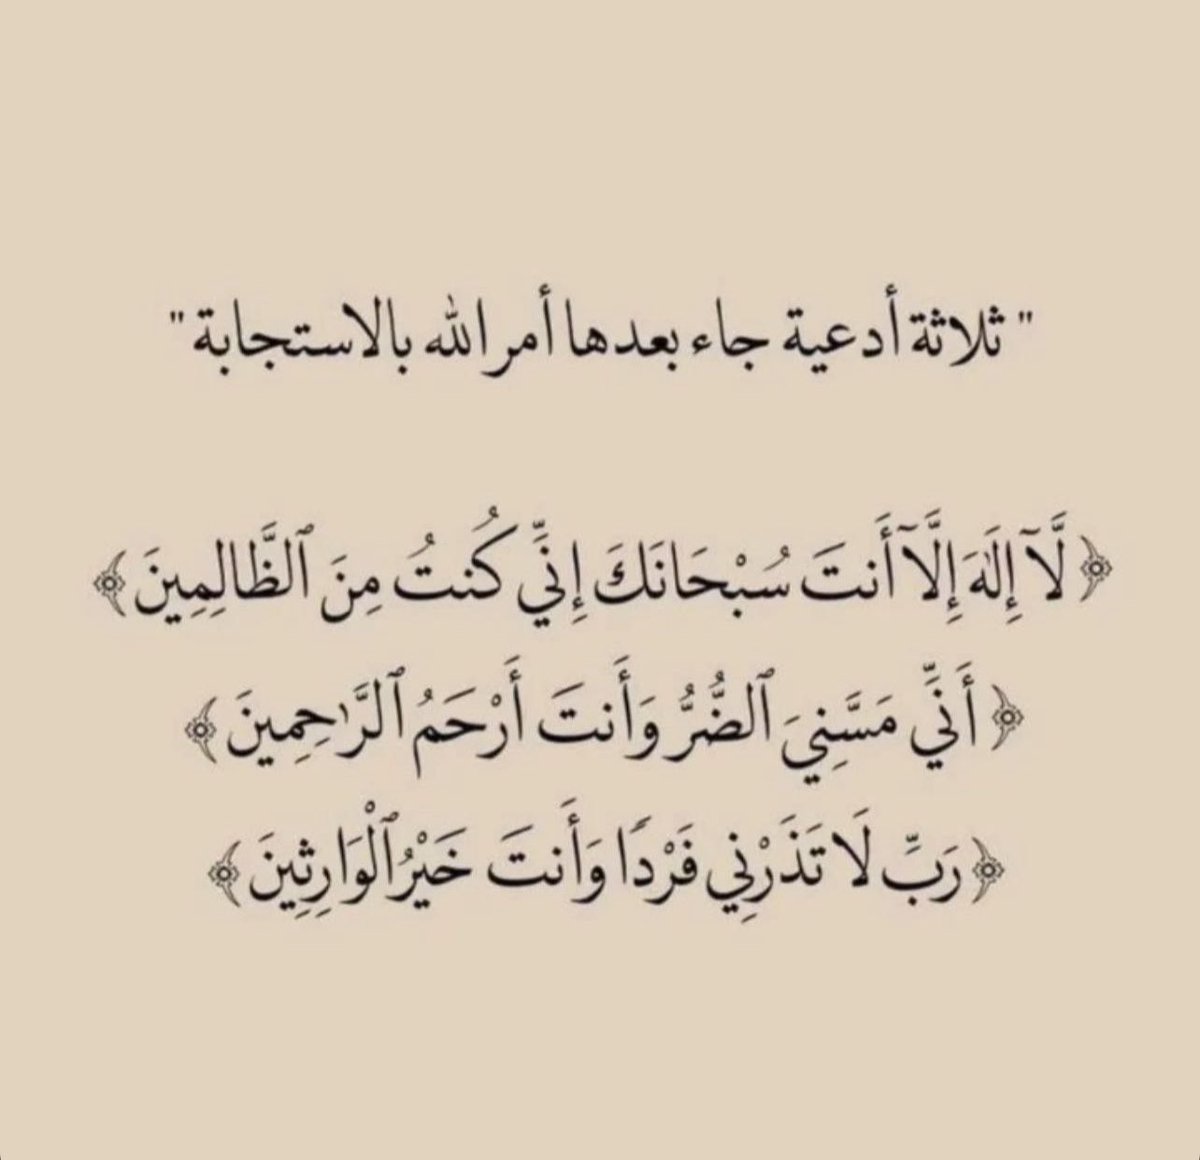 " ثلاثة أدعية جاء بعدها أمر الله بالاستجابة "
﴿لَّآ إِلَٰهَ إِلَّآ أَنتَ سُبْحَانَكَ إِنِّي كُنتُ مِنَ ٱلظَّالِمِينَ﴾
﴿أَنِّي مَسَّنِيَ ٱلضُّرُّ وَأَنتَ أَرْحَمُ ٱلرَّٰحِمِينَ﴾
﴿رَبِّ لَا تَذَرْنِي فَرْدًا وَأَنتَ خَيْرُ ٱلْوَارِثِينَ﴾